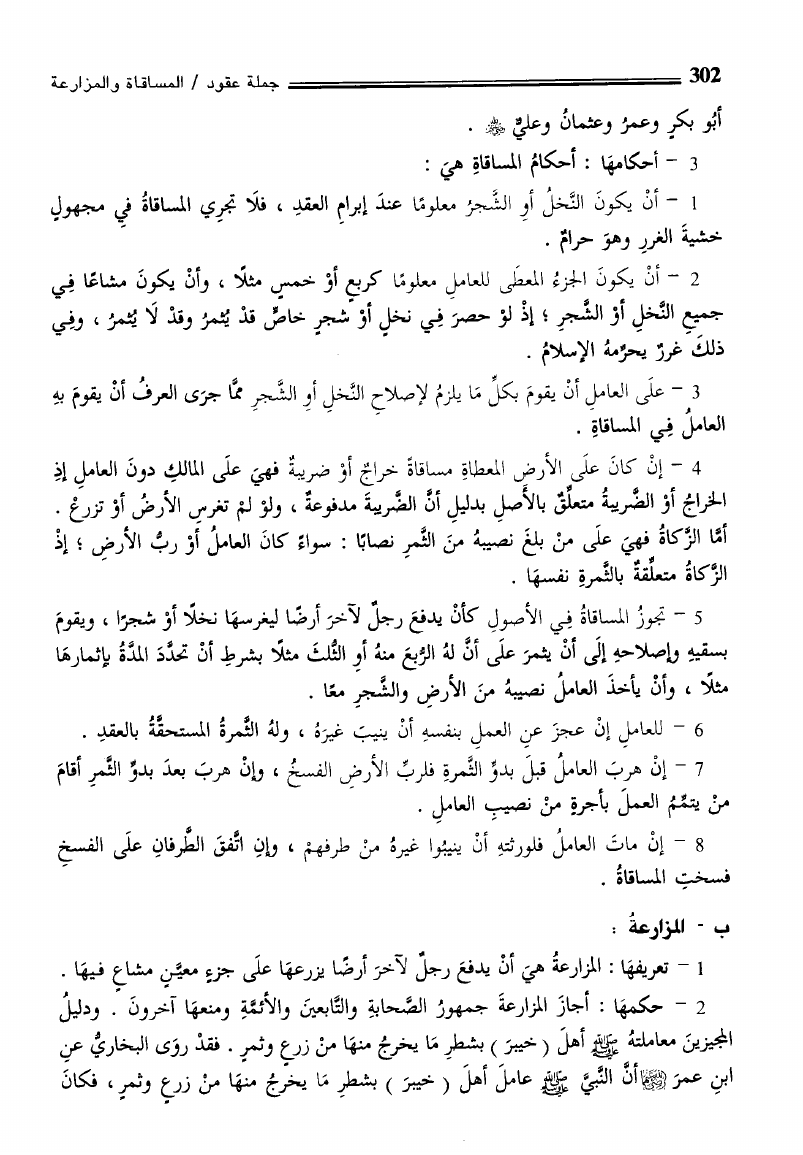 302 جملة عقود / المساقاة والمزارعة
أبُو بكرٍ وعمرُ وعثمانُ وعليٌّ ﷺ .
3 - أحكامهَا : أحكامُ المساقاةِ هيَ :
1 - أنْ يكونَ النَّخلُ أوِ الشَّجرُ معلومًا عندَ إبرامِ العقدِ ، فلَا تجرِي المساقاةُ فِي مجهولٍ
خشيةَ الغررِ وهوَ حرامٌ .
2 - أنْ يكونَ الجزءُ المعطَى للعاملِ معلومًا كربعٍ أوْ خمسٍ مثلًا ، وأنْ يكونَ مشاعًا فِي
جميعِ النَّخلِ أوْ الشَّجرِ ؛ إذْ لوْ حصرَ فِي نخلٍ أوْ شجرٍ خاصٍّ قدْ يُثمرُ وقدْ لَا يُثمرُ ، وفِي
ذلكَ غررٌ يحرِّمهُ الإسلامُ .
3 - علَى العاملِ أنْ يقومَ بكلِّ مَا يلزمُ لإصلاحِ النَّخلِ أوِ الشَّجرِ ممَّا جرَى العرفُ أنْ يقومَ بهِ
العاملُ فِي المساقاةِ .
4 - إنْ كانَ علَى الأرضِ المعطاةِ مساقاةً خراجٌ أوْ ضريبةٌ فهيَ علَى المالكِ دونَ العاملِ إذِ
الخراجُ أوْ الضَّريبةُ متعلِّقٌ بالأصلِ بدليلِ أنَّ الضَّريبةَ مدفوعةٌ ، ولوْ لمْ تغرسِ الأرضُ أوْ تزرعْ .
أمَّا الزَّكاةُ فهيَ علَى منْ بلغَ نصيبهُ منَ الثَّمرِ نصابًا : سواءً كانَ العاملُ أوْ ربُّ الأرضِ ؛ إذْ
الزَّكاةُ متعلِّقةٌ بالثَّمرةِ نفسهَا .
5 - تجوزُ المساقاةُ فِي الأصولِ كأنْ يدفعَ رجلٌ لآخرَ أرضًا ليغرسهَا نخلًا أوْ شجرًا ، ويقومَ
بسقيهِ وإصلاحهِ إلَى أنْ يثمرَ علَى أنَّ لهُ الرُّبعَ منهُ أوِ الثُّلثَ مثلًا بشرطِ أنْ تحدَّدَ المدَّةُ بإثمارهَا
مثلًا ، وأنْ يأخذَ العاملُ نصيبهُ منَ الأرضِ والشَّجرِ معًا .
6 - للعاملِ إنْ عجزَ عنِ العملِ بنفسهِ أنْ ينيبَ غيرَهُ ، ولهُ الثَّمرةُ المستحقَّةُ بالعقدِ .
7 - إنْ هربَ العاملُ قبلَ بدوِّ الثَّمرةِ فلربِّ الأرضِ الفسخُ ، وإنْ هربَ بعدَ بدوِّ الثَّمرِ أقامَ
منْ يتمِّمُ العملَ بأجرةٍ منْ نصيبِ العاملِ .
8 - إنْ ماتَ العاملُ فلورثتهِ أنْ ينيبُوا غيرهُ منْ طرفهمْ ، وإنِ اتَّفقَ الطَّرفانِ علَى الفسخِ
فسختِ المساقاةُ .
ب - المزارعةُ :
1 - تعريفهَا : المزارعةُ هيَ أنْ يدفعَ رجلٌ لآخرَ أرضًا يزرعهَا علَى جزءٍ معيَّنٍ مشاعٍ فيهَا .
2 - حكمهَا : أجازَ المزارعةَ جمهورُ الصَّحابةِ والتَّابعينَ والأئمَّةِ ومنعهَا آخرونَ . ودليلُ
المجيزينَ معاملتهُ ﷺ أهلَ ( خيبرَ ) بشطرِ مَا يخرجُ منهَا منْ زرعٍ وثمرٍ . فقدْ روَى البخاريُّ عنِ
ابنِ عمرَ أنَّ النَّبيَّ ﷺ عاملَ أهلَ ( خيبرَ ) بشطرِ مَا يخرجُ منهَا منْ زرعٍ وثمرٍ ، فكانَ